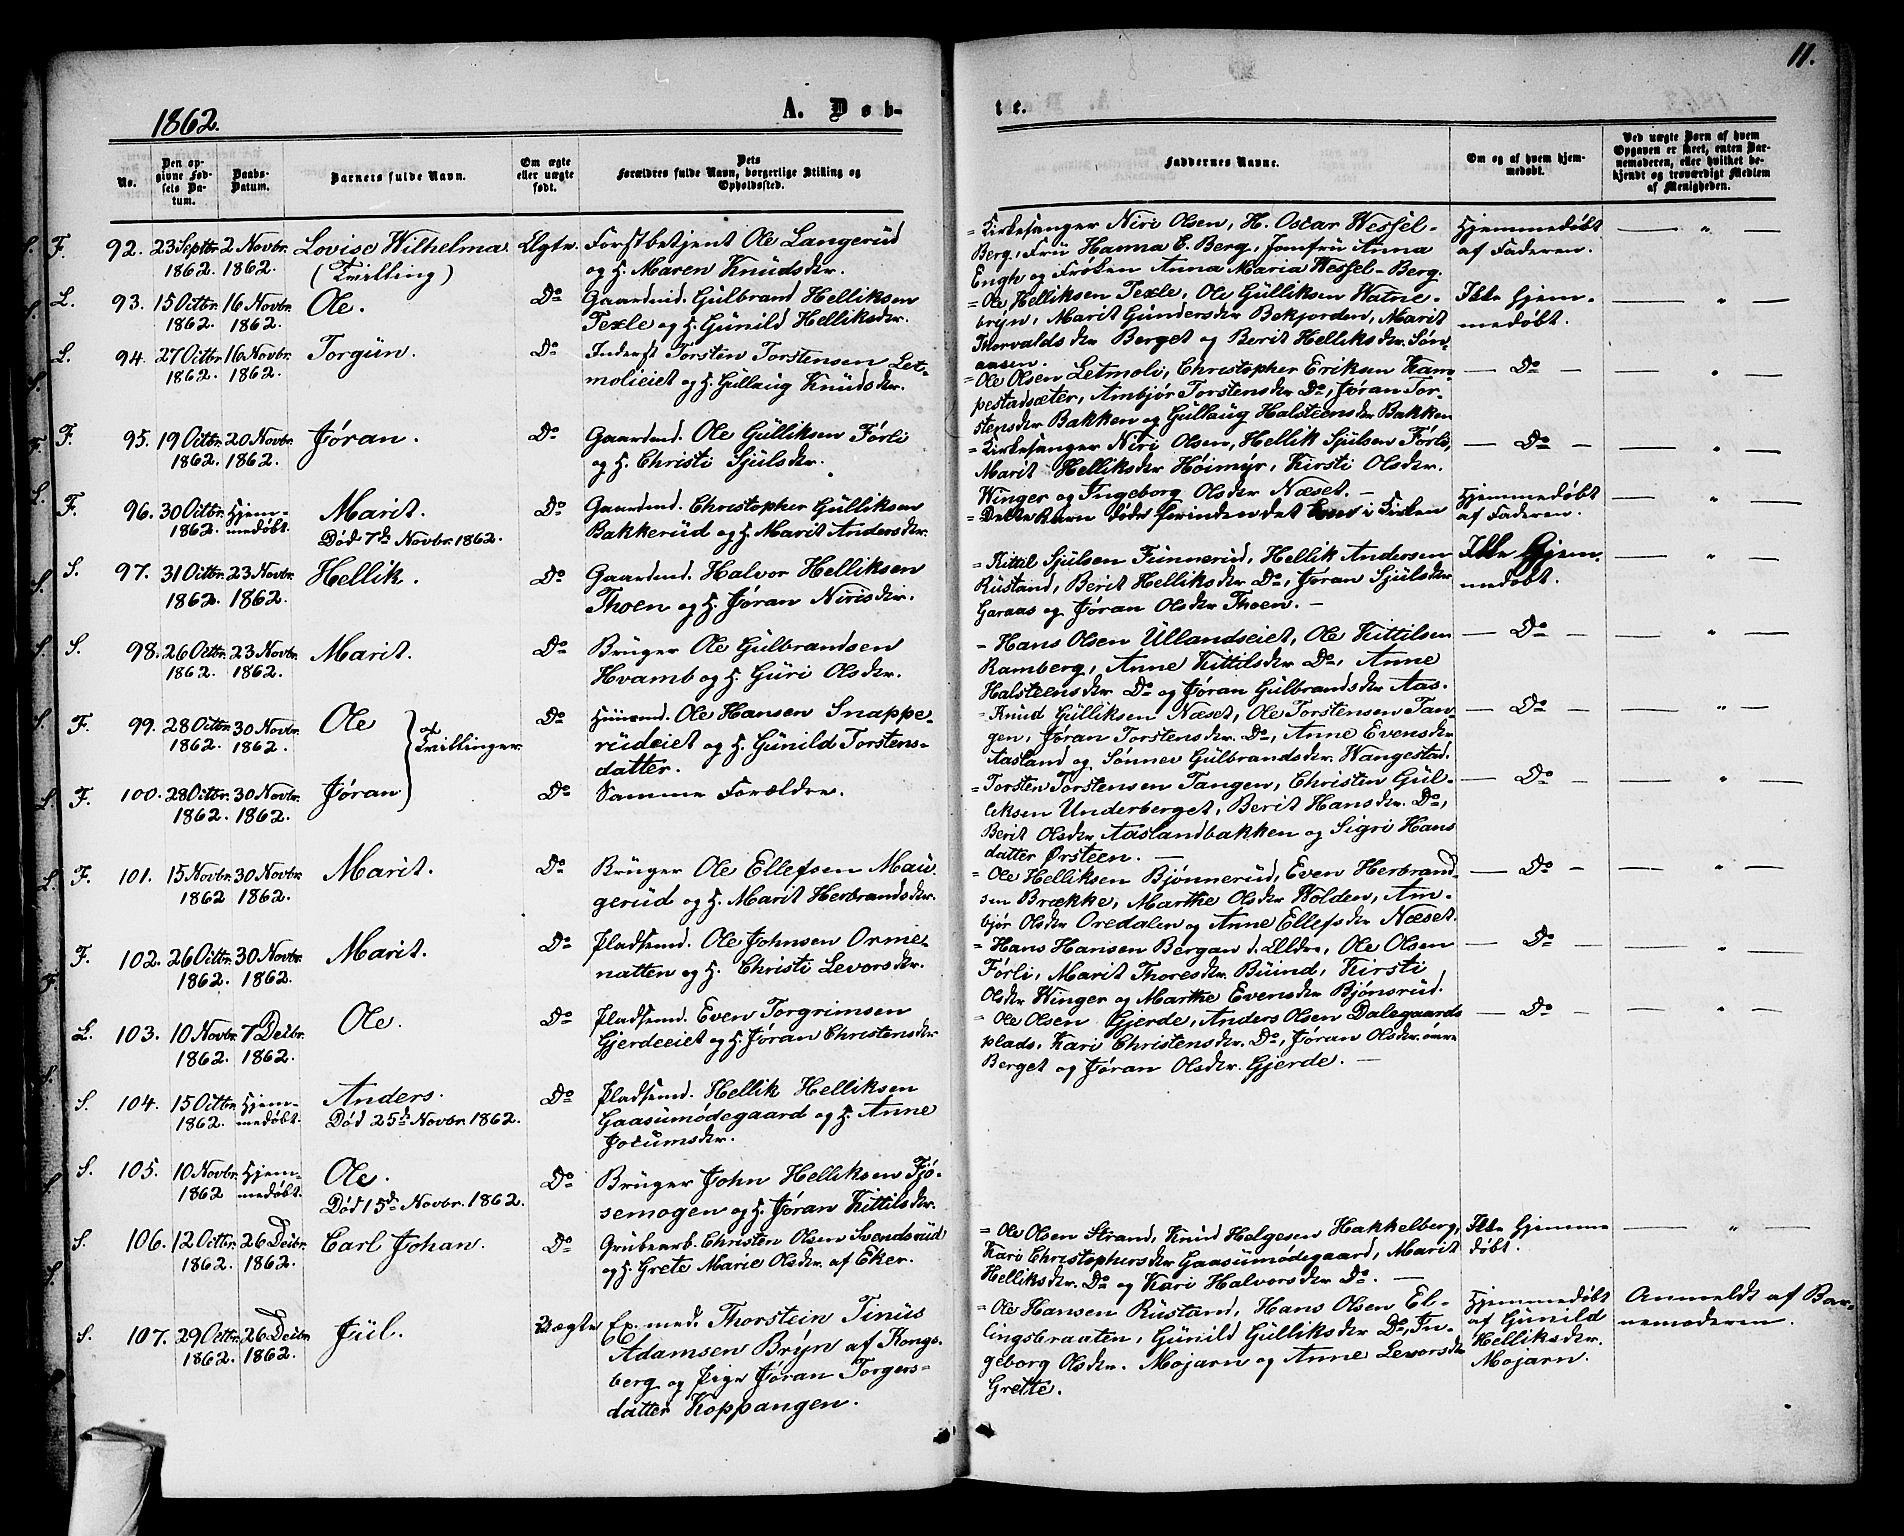 11.
1862.
A. Døb-
te.
No.
Den op-
givne Fød-
sels Da-
tum.
Daabs-
Datum.
Barnets fulde Navn.
Om ægte
eller uægte
født.
Dets
Forældres fulde Navn, borgerlige Stilling og
Opholdssted.
Faddernes Navne.
Om og af hvem hjem-
medøbt.
Ved uægte Børn af hvem
Opgaven er skeet, enten Bar-
nemoderen, eller hvilket be-
kjendt og troværdigt Medlem
af Menigheden.
F. 92. 23 Septbr. 2 Novbr. Lovise Wilhelma Ægte. Forstbetjent Ole Langerud
1862. 1862. (Tvilling) og H. Maren Knudsdr.
= Kirkesanger Niri Olsen, H. Oscar Wessel-
Berg, Fru Hanna E. Berg, Jomfru Anna
Engh og Frøken Anna Maria Wessel-Berg.
Hjemmedøbt
af Faderen. — " —
L. 93. 15 Octbr. 16 Novbr. Ole. Do Gaardmd. Gulbrand Helliksen
1862. 1862. Texle og H. Gunild Helliksdr.
= Ole Helliksen Texle, Ole Gulliksen Watne-
bryn, Marit Gundersdr Bekjorden, Marit
Thorvaldsdr Berget og Berit Helliksdr. Søn-
ansen.
Ikke hjem-
medøbt. — " —
L. 94. 27 Octbr. 16 Novbr. Torgun. Do Inderst Torsten Torstensen Let-
1862. 1862. molieiet og H. Gullaug Knudsdr.
= Ole Olsen Letmoli, Christopher Eriksen Kam-
pestadsæter, Ambjør Torstensdr Do, Jøran Tor-
stensdr Bakken og Gullaug Halsteensdr Bakken
— Do — — " —
F. 95. 19 Octbr. 20 Novbr. Jøran. Do Gaardmd. Ole Gulliksen Førli
1862. 1862. og H. Christi Sjulsdr.
= Kirkesanger Niri Olsen, Hellik Sjulsen Førli,
Marit Helliksdr Høimyr, Kirsti Olsdr.
Winger og Ingeborg Olsdr Næset. —
— Do — — " —
F. 96. 30 Octbr. Hjem- Marit. Do Gaardmd. Christopher Gulliksen
1862. medøbt. Død 7de Novbr. 1862. Bakkerud og H. Marit Andersdr.
= Dette Barn døde forinden det kom i Kirken
Hjemmedøbt
af Faderen. — " —
S. 97. 31 Octbr. 23 Novbr. Hellik. Do Gaardmd. Halvor Helliksen
1862. 1862. Thoen og H. Jøran Nirisdr.
= Kittil Sjulsen Funnerud, Hellik Andersen
Rustand, Berit Helliksdr Do, Jøran Sjulsdr
Garaas og Jøran Olsdr Thoen. —
Ikke Hjem-
medøbt. — " —
S. 98. 26 Octbr. 23 Novbr. Marit. Do Bruger Ole Gulbrandsen
1862. 1862. Hvamb og H. Guri Olsdr.
= Hans Olsen Ullandseiet, Ole Kittilsen
Ramberg, Anne Kittilsdr Do, Anne
Halsteensdr Do og Jøran Gulbrandsdr Aas.
— Do — — " —
F. 99. 28 Octbr. 30 Novbr. Ole Tvillinger Do Huusmd. Ole Hansen Snappe-
1862. 1862. rudeiet og H. Gunild Torstens-
datter.
= Knud Gulliksen Næset, Ole Torstensen Tan-
gen, Jøran Torstensdr. Do, Anne Evensdr
Aasland og Sønnev Gulbrandsdr. Wangestad.
— Do — — " —
F. 100. 28 Octbr. 30 Novbr. Jøran Do Samme Forældre.
1862. 1862.
= Torsten Torstensen Tangen, Christen Gul-
liksen Underberget, Berit Hansdr. Do,
Berit Olsdr Aaslandbakken og Sigri Hans
datter Ørsteen. —
— Do — — " —
F. 101. 15 Novbr. 30 Novbr. Marit. Do Bruger Ole Ellefsen Mau-
1862 1862. gerud og H. Marit Herbrandsdr.
= Ole Helliksen Bjønnerud, Even Herbrand-
sen Brække, Marthe Olsdr Wolden, Am-
bjør Olsdr Oredalen og Anne Ellefsdr Næset.
— Do — — " —
F. 102. 26 Octbr. 30 Novbr. Marit. Do Pladsmd. Ole Johnsen Orme-
1862. 1862. natten og H. Christi Levorsdr.
= Hans Hansen Bergan d. Ældre, Ole Olsen
Førli, Marit Thoresdr. Buind, Kirsti
Olsdr Winger og Marthe Evensdr Bjønsrud.
— Do — — " —
L. 103. 10 Novbr. 7 Decbr. Ole. Do Pladsmd. Even Torgrimsen
1862. 1862. Gjerdeeiet og H. Jøran Christensdr.
= Ole Olsen Gjerde, Anders Olsen Dalegaards
plads, Kari Christensdr. Do, Jøran Olsdr. øvre
Berget og Jøran Olsdr. Gjerde. —
— Do — — " —
S. 104. 15 Octbr. Hjem- Anders. Do Pladsmd. Hellik Helliksen
1862. medøbt. Død 25de Novbr. 1862. Gaasumødegaard og H. Anne
Jocumsdr.
S. 105. 10 Novbr. Hjem- Ole. Do Bruger John Helliksen Fjø-
1862 medøbt. Død 15de Novbr. 1862. semogen og H. Jøran Kittilsdr.
S. 106. 12 Octbr. 26 Decbr. Carl Johan. Do Grubearb. Christen Olsen Svendsrud
1862. 1862. og H. Grete Marie Olsdr. af Eker.
= Ole Olsen Strand, Knud Helgesen Hakkelberg,
Kari Christophersdr Gaasumødegaard, Marit
Helliksdr. Do og Kari Halvorsdr Do. —
Ikke Hjemme
døbt. — " —
S. 107. 29 Octbr. 26 Decbr. Juul. Uægte Ex. med. Thorstein Tinius
1862. 1862. Adamsen Bryn af Kongs-
berg og Pige Jøran Torgers-
datter Koppangen.
= Ole Hansen Rustand, Hans Olsen El-
lingsbraaten, Gunild Gulliksdr Do, In-
geborg Olsdr. Mojarn og Anne Levorsdr
Grette.
Hjemmedøbt
af Gunild
Helliksdr.
Mojarn.
Anmeldt af Bar-
nemoderen.